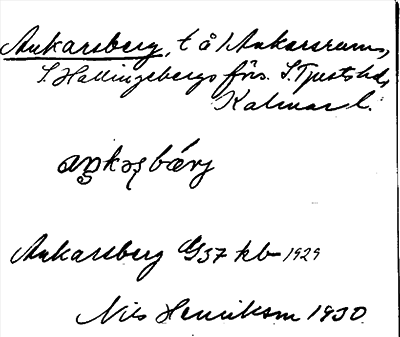 Ankarsberg, t å / Ankarsrum,
S. Hallingebergs förs. S. Tjusts hd,
Kalmar l.
aŋkəʂbærj
Ankarsberg G37 kb 1929
Nils Henrikson 1930